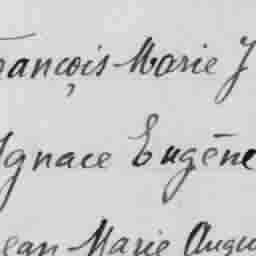 François Marie J
Ignace Eugène
Jean Marie Augu